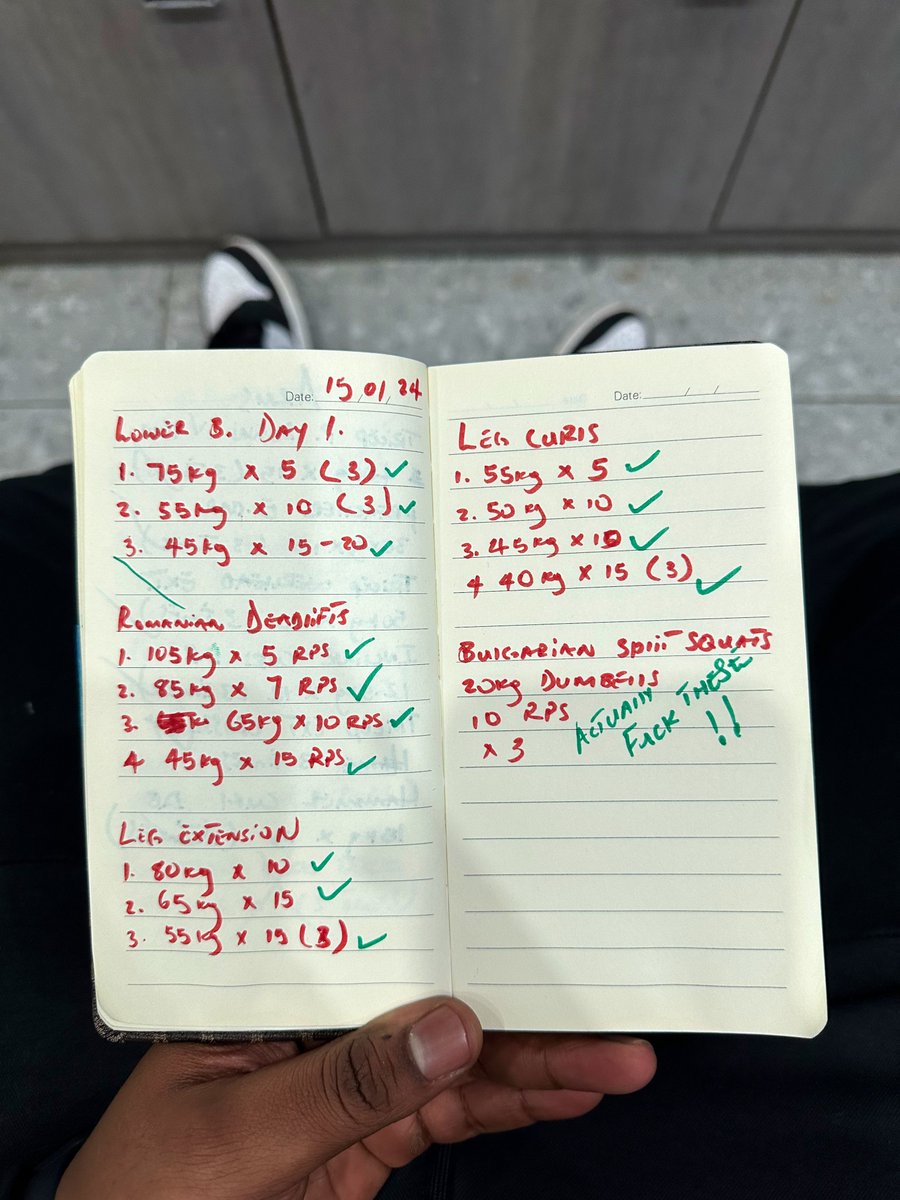 Date: 15/01/24
LOWER B. DAY 1.
1. 75kg x 5 (3) ✓
2. 55kg x 10 (3) ✓
3. 45kg x 15-20 ✓
ROMANIAN DEADLIFTS
1. 105kg x 5 RPS ✓
2. 85kg x 7 RPS ✓
3. 65kg x 10 RPS ✓
4 45kg x 15 RPS ✓
LEG EXTENSION
1. 80kg x 10 ✓
2. 65kg x 15 ✓
3. 55kg x 15 (3) ✓
Date: / /
LEG CURLS
1. 55kg x 5 ✓
2. 50kg x 10 ✓
3. 45kg x 10 ✓
4 40kg x 15 (3) ✓
BULGARIAN SPLIT SQUATS
20kg DUMBELLS
10 RPS
x 3
ACTUALLY
FUCK THESE
!!